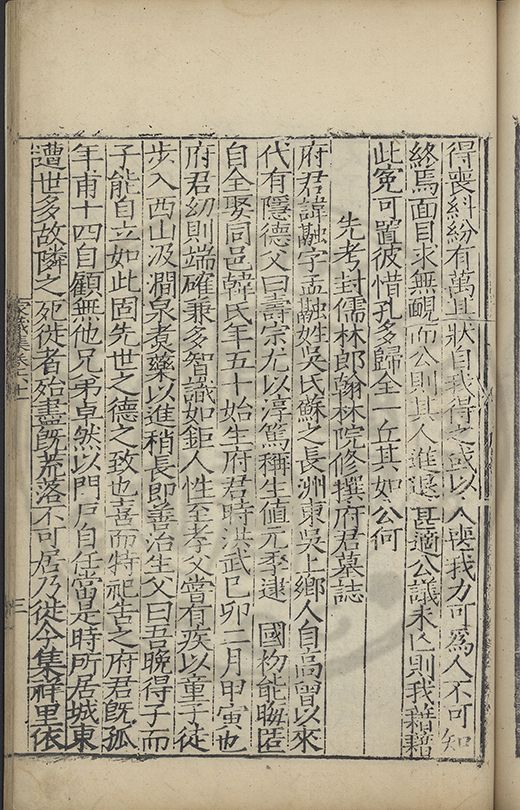 得喪糾紛有萬其狀自我得之或以人喪我力可為人不可知
終焉面目求無靦而公則其人進退甚適公議未亡則我藉藉
此冤可置彼惜孔多歸全一丘其如公何
先考封儒林郎翰林院修撰府君墓誌
府君諱融字孟融姓吳氏蘇之長洲東吳上鄉人自高曾以來
代有隱德父曰壽宗尤以淳篤稱生值元季逮 國初能晦匿
自全娶同邑韓氏年五十始生府君時洪武巳卯二月甲寅也
府君幼則端確兼多智識如鉅人性至孝父嘗有疾以童子徒
步入西山汲澗泉煮藥以進稍長即善治生父曰吾晚得子而
子能自立如此固先世之德之致也喜而特祀告之府君既孤
年甫十四自顧無他兄弟卓然以門戶自任當是時所居城東
遭世多故隣之死徙者殆盡既荒落不可居乃徙今集祥里依
家藏集卷六十
三